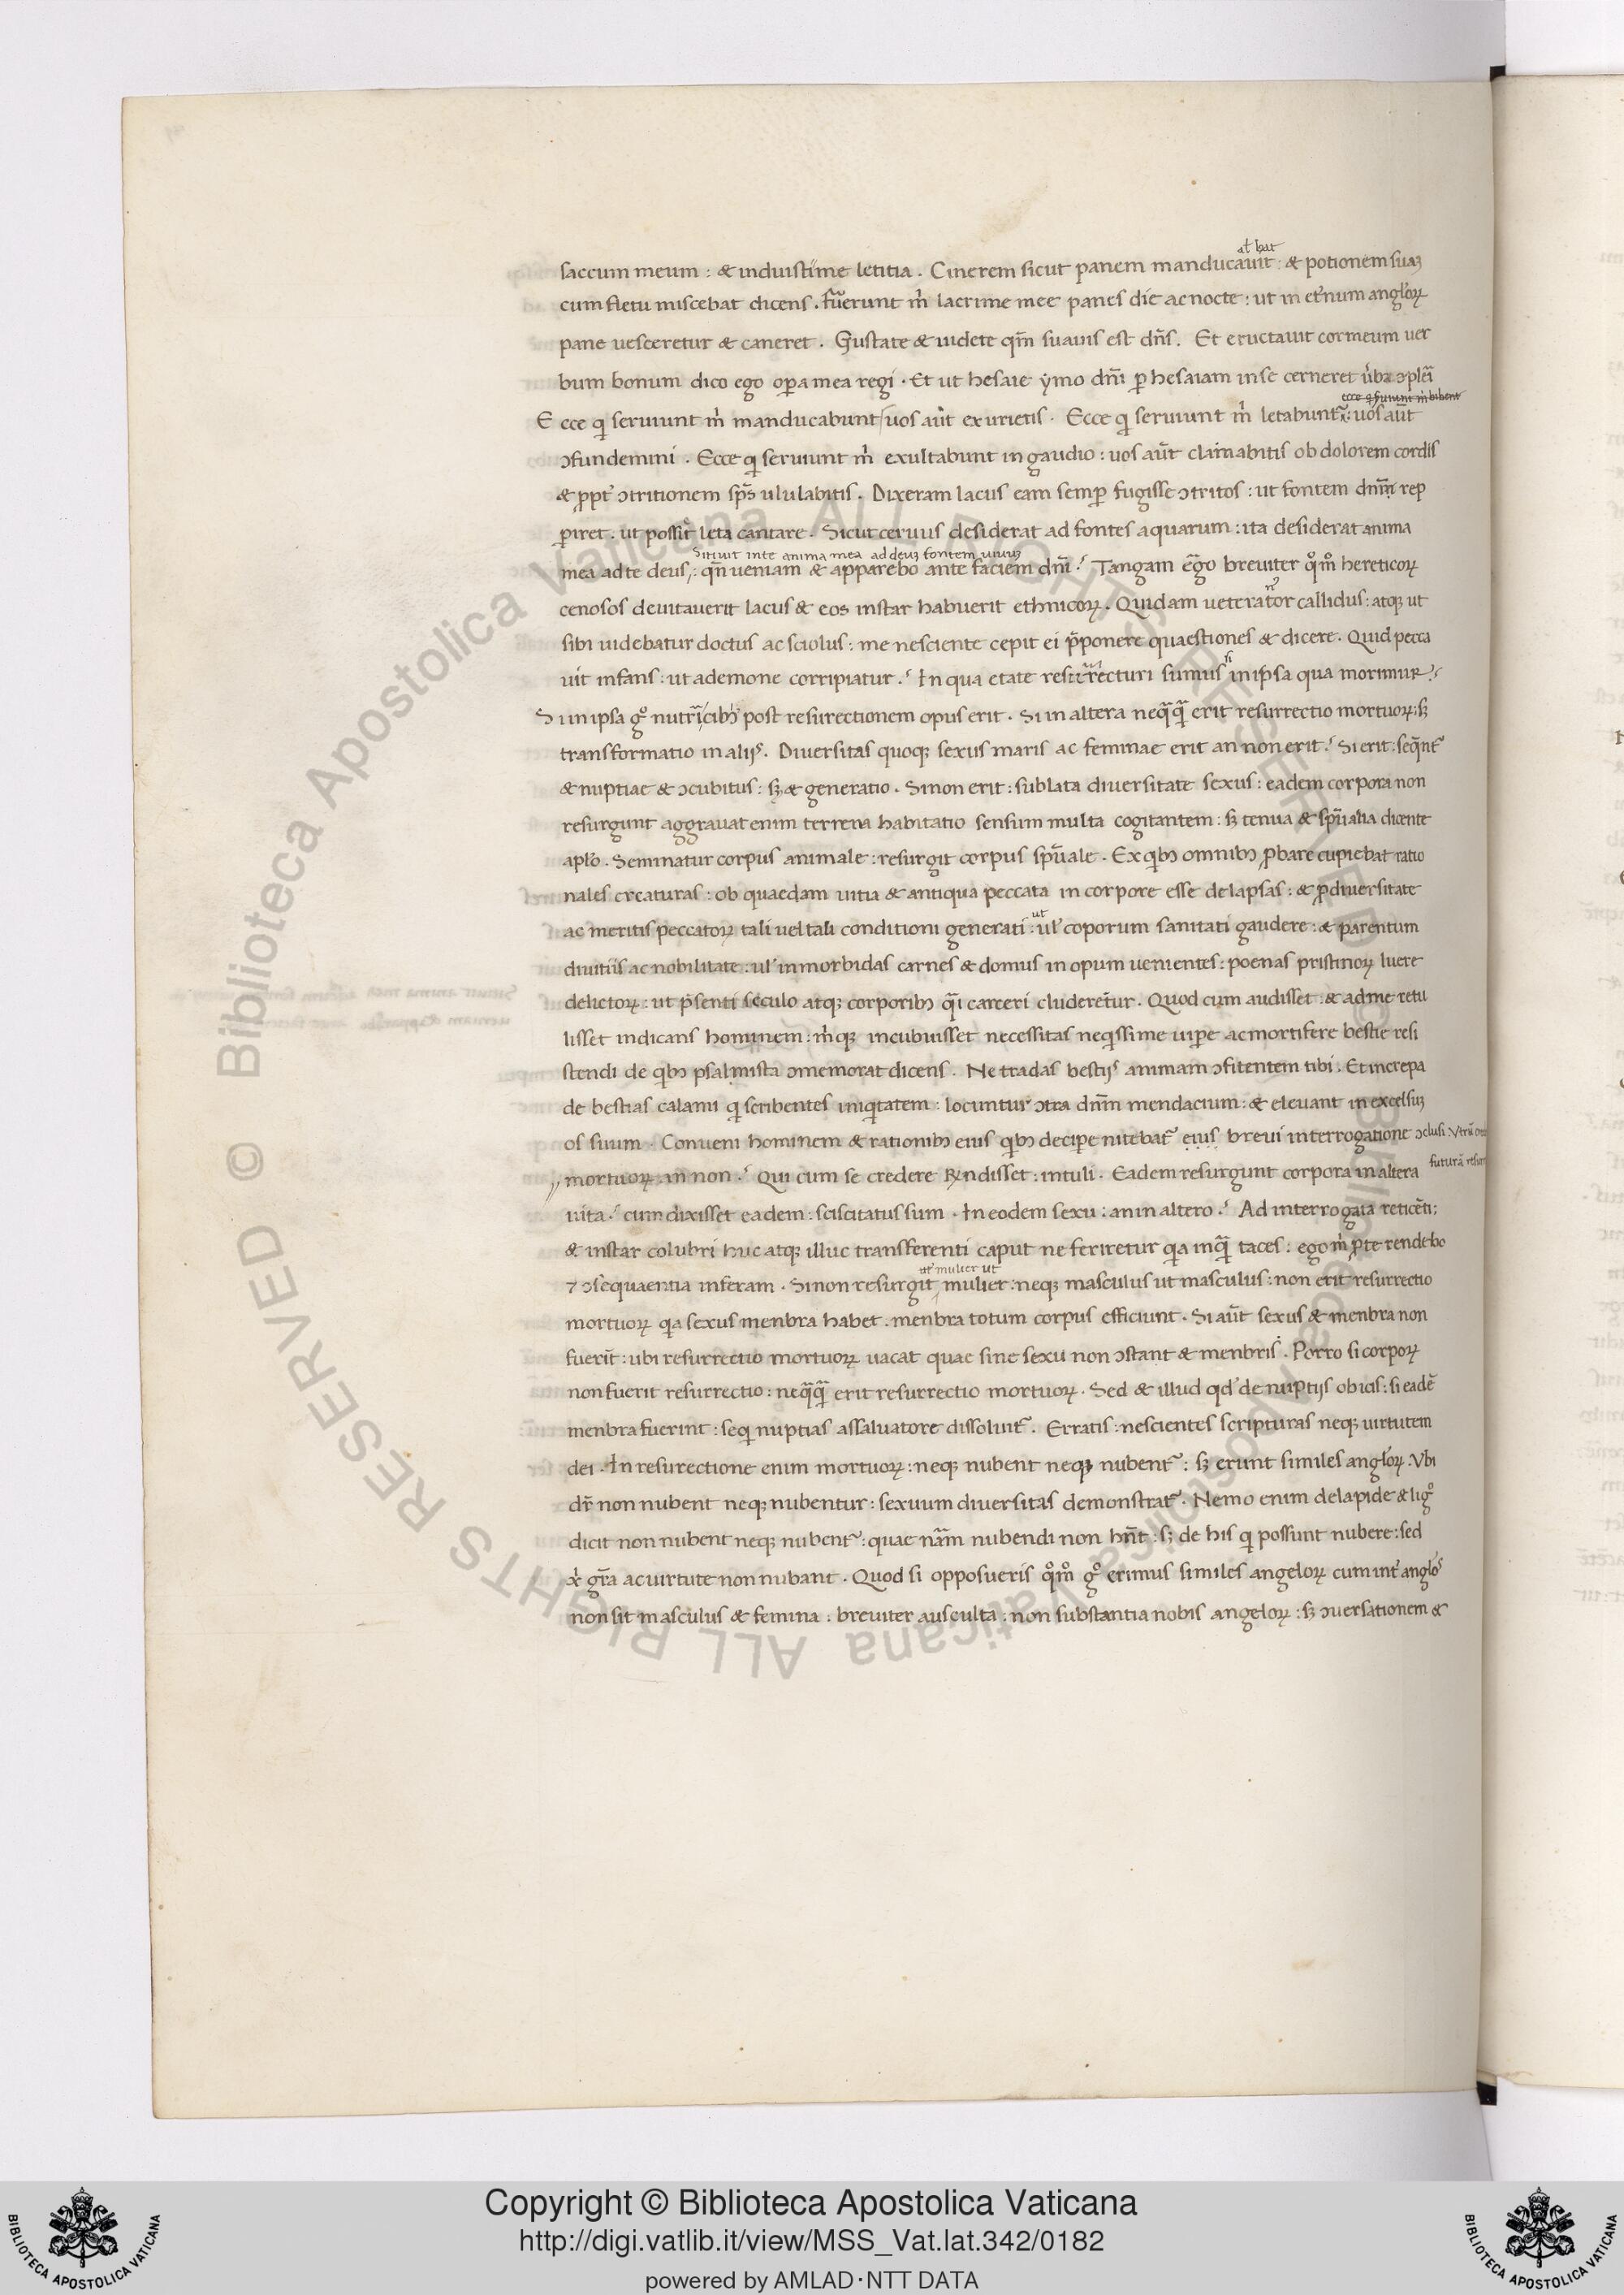 at bat
saccum meum : & induisti me letitia . Cinerem sicut panem manducauit : & potionem suaʒ
cum fletu miscebat dicens . fuerunt m̃ lacrime mee panes die ac nocte : ut in et̃num anglorꝝ
pane uesceretur & caneret . Gustate & uidete qm̃ suauis est dñs . Et eructauit cor meum uer
bum bonum dico ego oꝑa mea regi . Et ut hesaie ymo dñi ꝑ hesaiam in se cerneret ũba ↄplẽi
ecce q̃ seruiunt m̃ bibent
Ecce qi seruiunt m̃ manducabunt / uos aũt exurietis . Ecce qi seruiunt m̃ letabunt᷑ : uos aũt
ↄfundemini . Ecce qi seruiunt m̃ exultabunt in gaudio : uos aũt clamabitis ob dolorem cordis
& ꝓpt̃ ↄtritionem sp̃s ululabitis . Dixeram lacus eam semꝑ fugisse ↄtritos : ut fontem dnm̃ rep
ꝑiret . ut possit leta cantare . Sicut ceruus desiderat ad fontes aquarum : ita desiderat anima
Sitiuit in te anima mea ad deuʒ fontem uiuuʒ
mea ad te deus : qñ ueniam & apparebo ante faciem dñi ? Tangam ẽgo breuiter qᵒmᵒ hereticoꝝ
cenosos deuitauerit lacus & eos instar habuerit ethnicoꝝ . Quidam ueterator callidus : atqꝫ ut
sibi uidebatur doctus ac sciolus : me nesciente cepit ei p̃ponere quaestiones & dicere . Quid pecca
uit infans : ut a demone corripiatur ? In qua etate resurrecturi sumus in ipsa qua morimur ?
Si in ipsa gᵒ nutricibꝫ post resurectionem opus erit . Si in altera neq̃q̃ erit resurrectio mortuoꝝ : sꝫ
transformatio in alijs . Diuersitas quoqꝫ sexus maris ac feminae erit an non erit ? Si erit : seq̃nt᷑
& nuptiae & ↄcubitus : sꝫ & generatio . Si non erit : sublata diuersitate sexus : eadem corpora non
resurgunt aggrauat enim terrena habitatio sensum multa cogitantem : sꝫ tenua & spũalia dicente
aplo . Seminatur corpus animale : resurgit corpus spũale . Ex qibꝫ omnibꝫ ꝓbare cupiebat ratio
nales creaturas : ob quaedam uitia & antiqua peccata in corpore esse delapsas : & ꝓ diuersitate
ac meritis peccatoꝝ tali uel tali conditioni generati : ut ul coporum sanitati gaudere : & parentum
diuitiis ac nobilitate : ul in morbidas carnes & domus inopum uenientes : poenas pristinoꝝ luere
delictoꝝ : ut p̃senti seculo atqꝫ corporibꝫ q̃i carceri cluderetur . Quod cum audisset : & ad me retu
lisset indicans hominem : m̃qꝫ incubuisset necessitas neqissime uiꝑe ac mortifere bestie resi
stendi de qibꝫ psalmista ↄmemorat dicens . Ne tradas bestijs animam ↄfitentem tibi . Et increpa
de bestias calami qi scribentes iniqitatem : locuntur ↄtra dnm̃ mendacium : & eleuant in excelsuʒ
os suum . Conueni hominem & rationibꝫ eius qibꝫ deciꝑe nitebat᷑ eius breui interrogatione ↄclusi . Vtrũ
futurã
mortuoꝝ : an non ? Qui cum se credere r̃ndisset : intuli . Eadem resurgunt corpora in altera
uita ? cum dixisset eadem : sciscitatus sum . In eodem sexu : an in altero ? Ad interrogata reticẽti :
& instar colubri huc atqꝫ illuc transferenti caput ne feriretur qia inq̃ taces : ego m̃ ꝓ te rendebo
at mulier ut
⁊ ↄsequaentia inferam . Si non resurgit mulier : neqꝫ masculus ut masculus : non erit resurrectio
mortuoꝝ qia sexus menbra habet . menbra totum corpus efficiunt . Si aũt sexus & menbra non
fuerit : ubi resurrectio mortuoꝝ uacat quae sine sexu non ↄstant & menbris . Porro si corpoꝝ
non fuerit resurrectio : neq̃q̃ erit resurrectio mortuoꝝ . Sed & illud qd de nuptijs obicis : si eadẽ
menbra fuerint : seqi nuptias assaluatore dissoluit᷑ . Erratis : nescientes scripturas neqꝫ uirtutem
dei . In resurectione enim mortuoꝝ : neqꝫ nubent neqꝫ nubent᷑ : sꝫ erunt similes angloꝝ . Vbi
dr̃ non nubent neqꝫ nubentur : sexuum diuersitas demonstrat᷑ . Nemo enim de lapide & ligᵒ
dicit non nubent neqꝫ nubent᷑ : quae nãm nubendi non hñt : sꝫ de his qi possunt nubere : sed
xi gr̃a ac uirtute non nubant . Quod si opposueris qᵒmᵒ gᵒ erimus similes angeloꝝ cum int̃ anglos
non sit masculus & femina : breuiter ausculta : non substantia nobis angeloꝝ : sꝫ ↄuersationem &
© Biblioteca Apostolica Vaticana ALL RIGHTS RESERVED
Copyright © Biblioteca Apostolica Vaticana
http://digi.vatlib.it/view/MSS_Vat.lat.342/0182
powered by AMLAD·NTT DATA
BIBLIOTECA APOSTOLICA VATICANA
BIBLIOTECA APOSTOLICA VATICANA